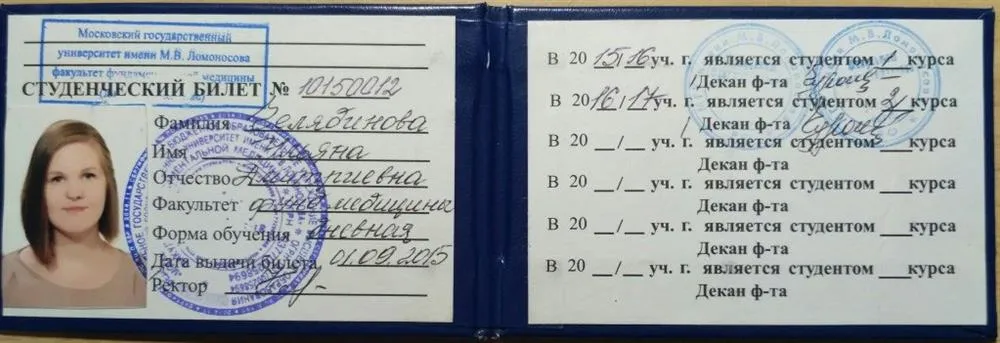 Московский государственный
университет имени М.В. Ломоносова
факультет фундаментальной медицины
СТУДЕНЧЕСКИЙ БИЛЕТ № 10150012
Фамилия Челябинова
Имя
Отчество Дмитриевна
Факультет фунд. медицины
Форма обучения дневная
Дата выдачи билета 01.09.2015
Ректор
В 20 15/16 уч. г. является студентом 1 курса
Декан ф-та
В 20 16/17 уч. г. является студентом 2 курса
Декан ф-та
В 20 __/__ уч. г. является студентом ___курса
Декан ф-та
В 20 __/__ уч. г. является студентом ___курса
Декан ф-та
В 20 __/__ уч. г. является студентом ___курса
Декан ф-та
В 20 __/__ уч. г. является студентом ___курса
Декан ф-та